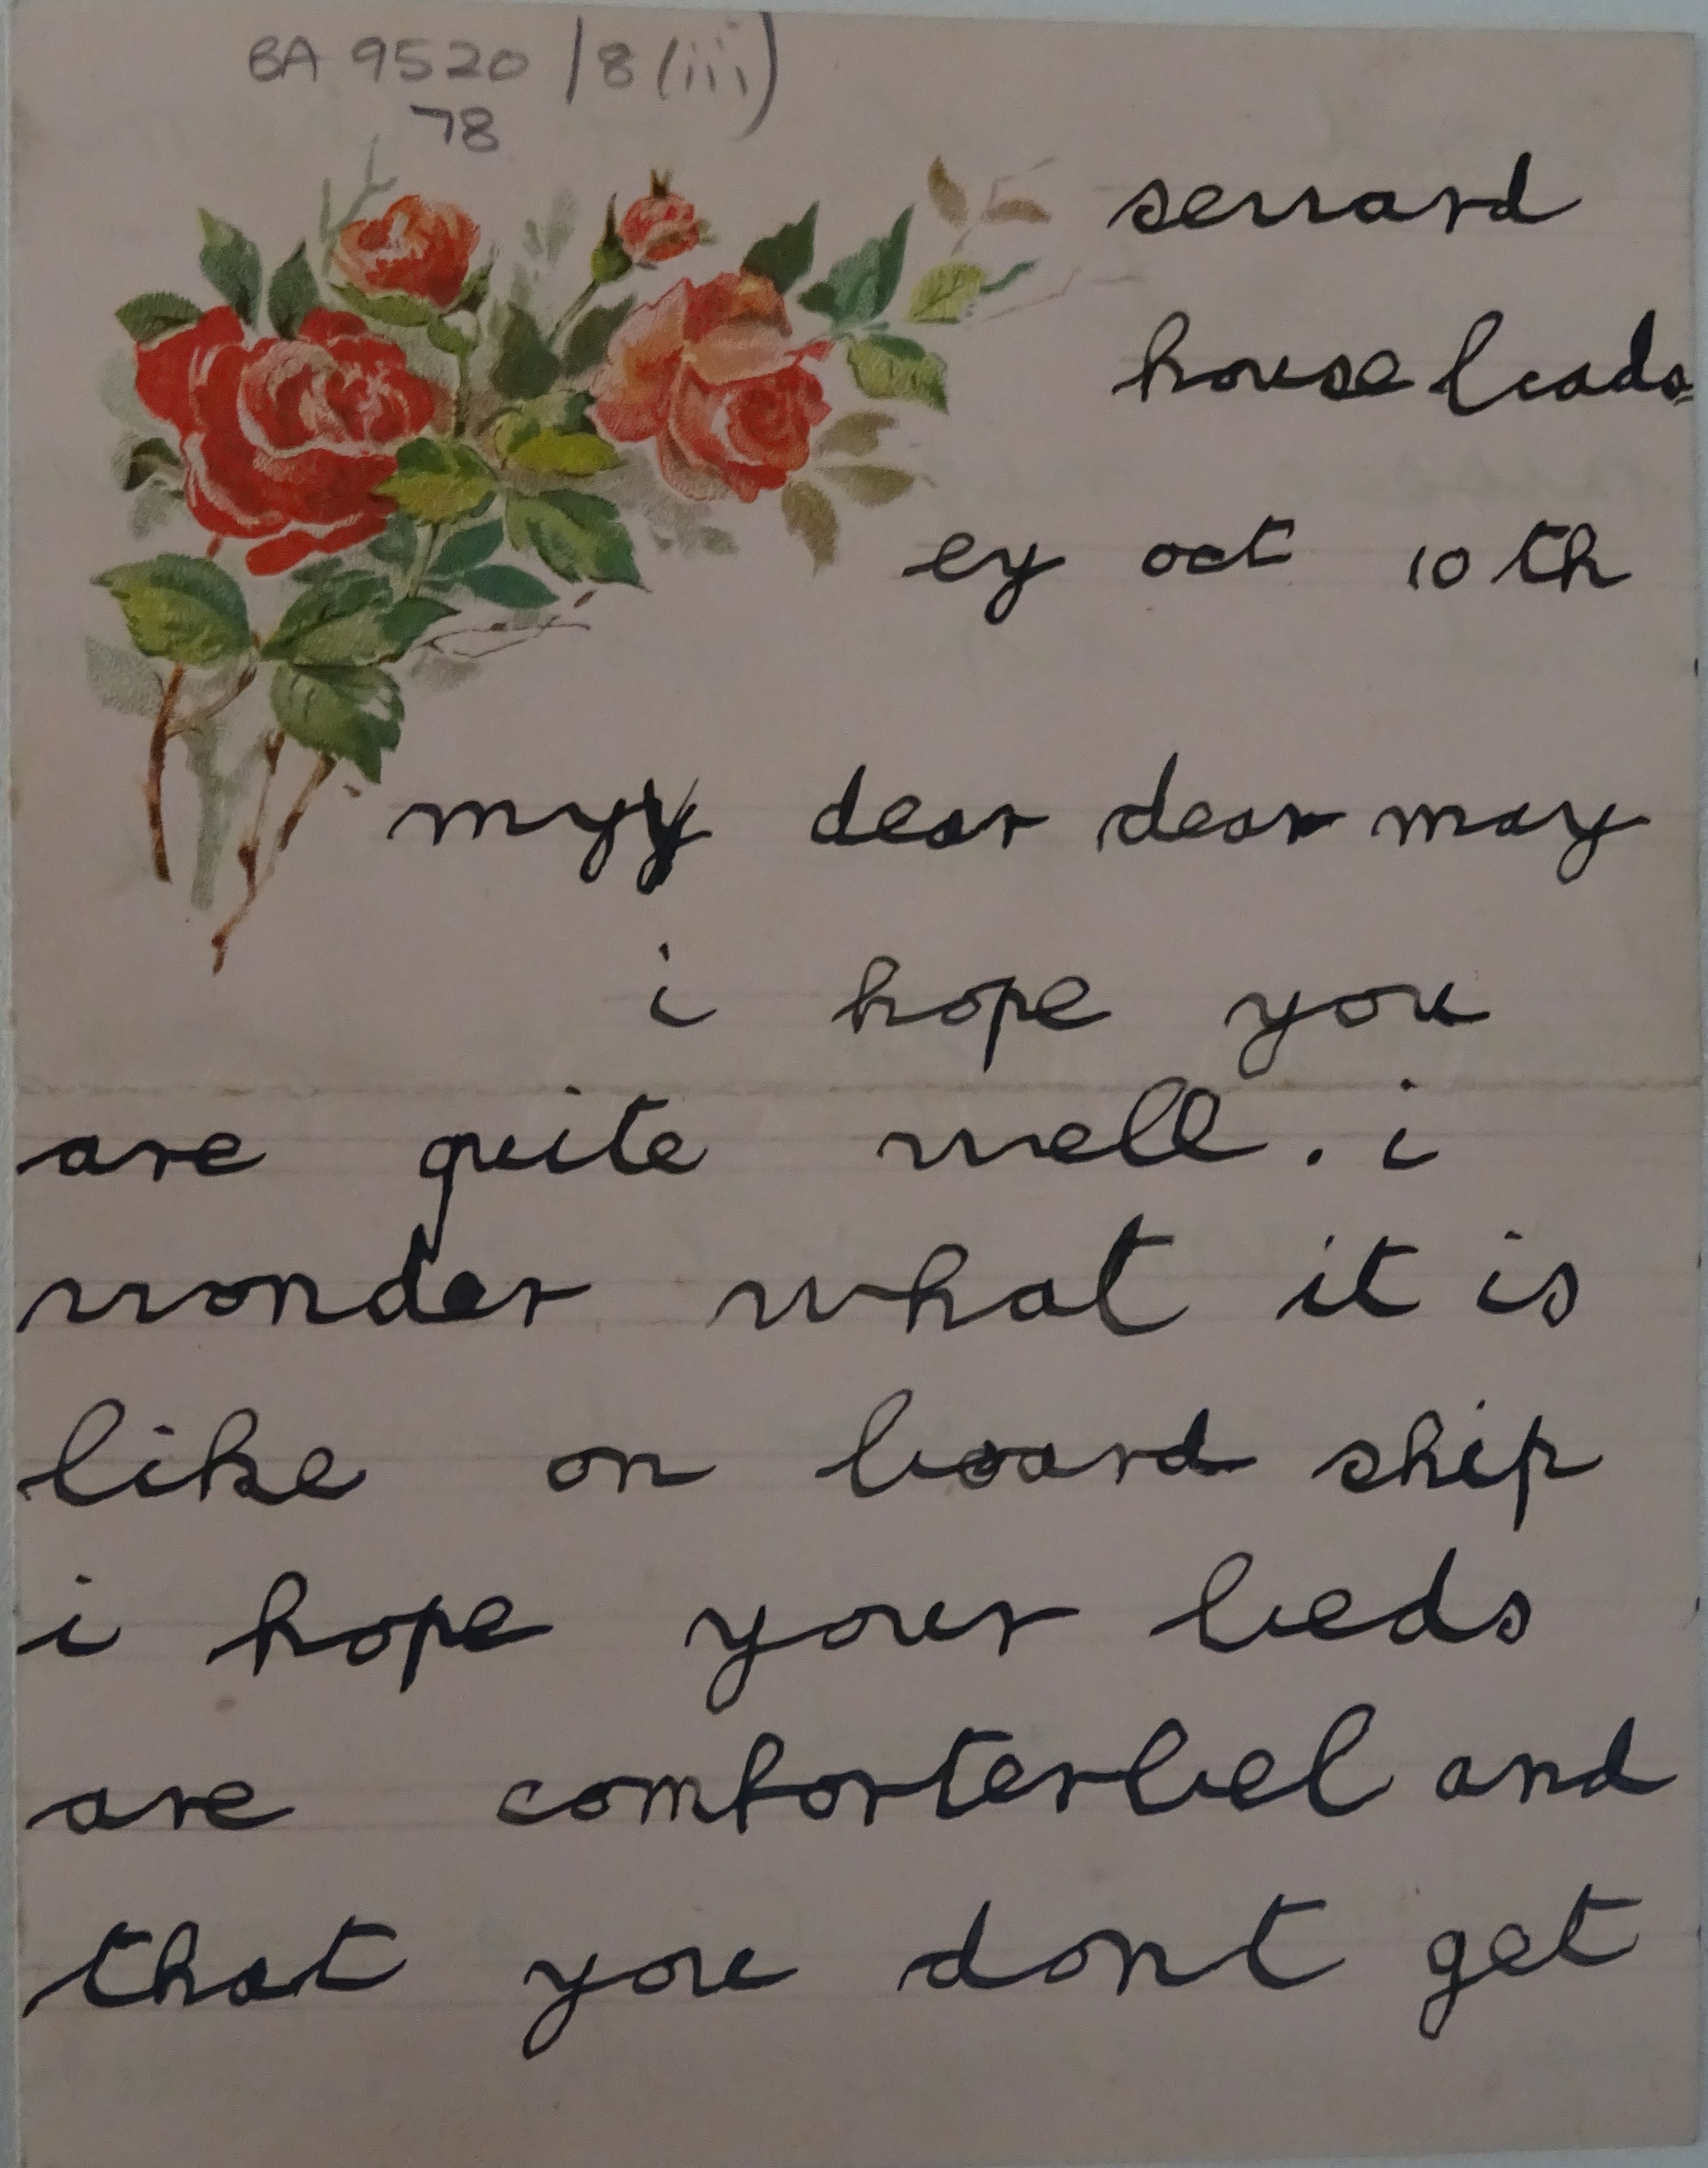 BA 9520 /8(iii)
78
seward
house bads=
ey oct 10th
myy dear dear may
i hope you
are quite well. i
wonder what it is
like on board ship
i hope your beds
are comforterbel and
that you dont get